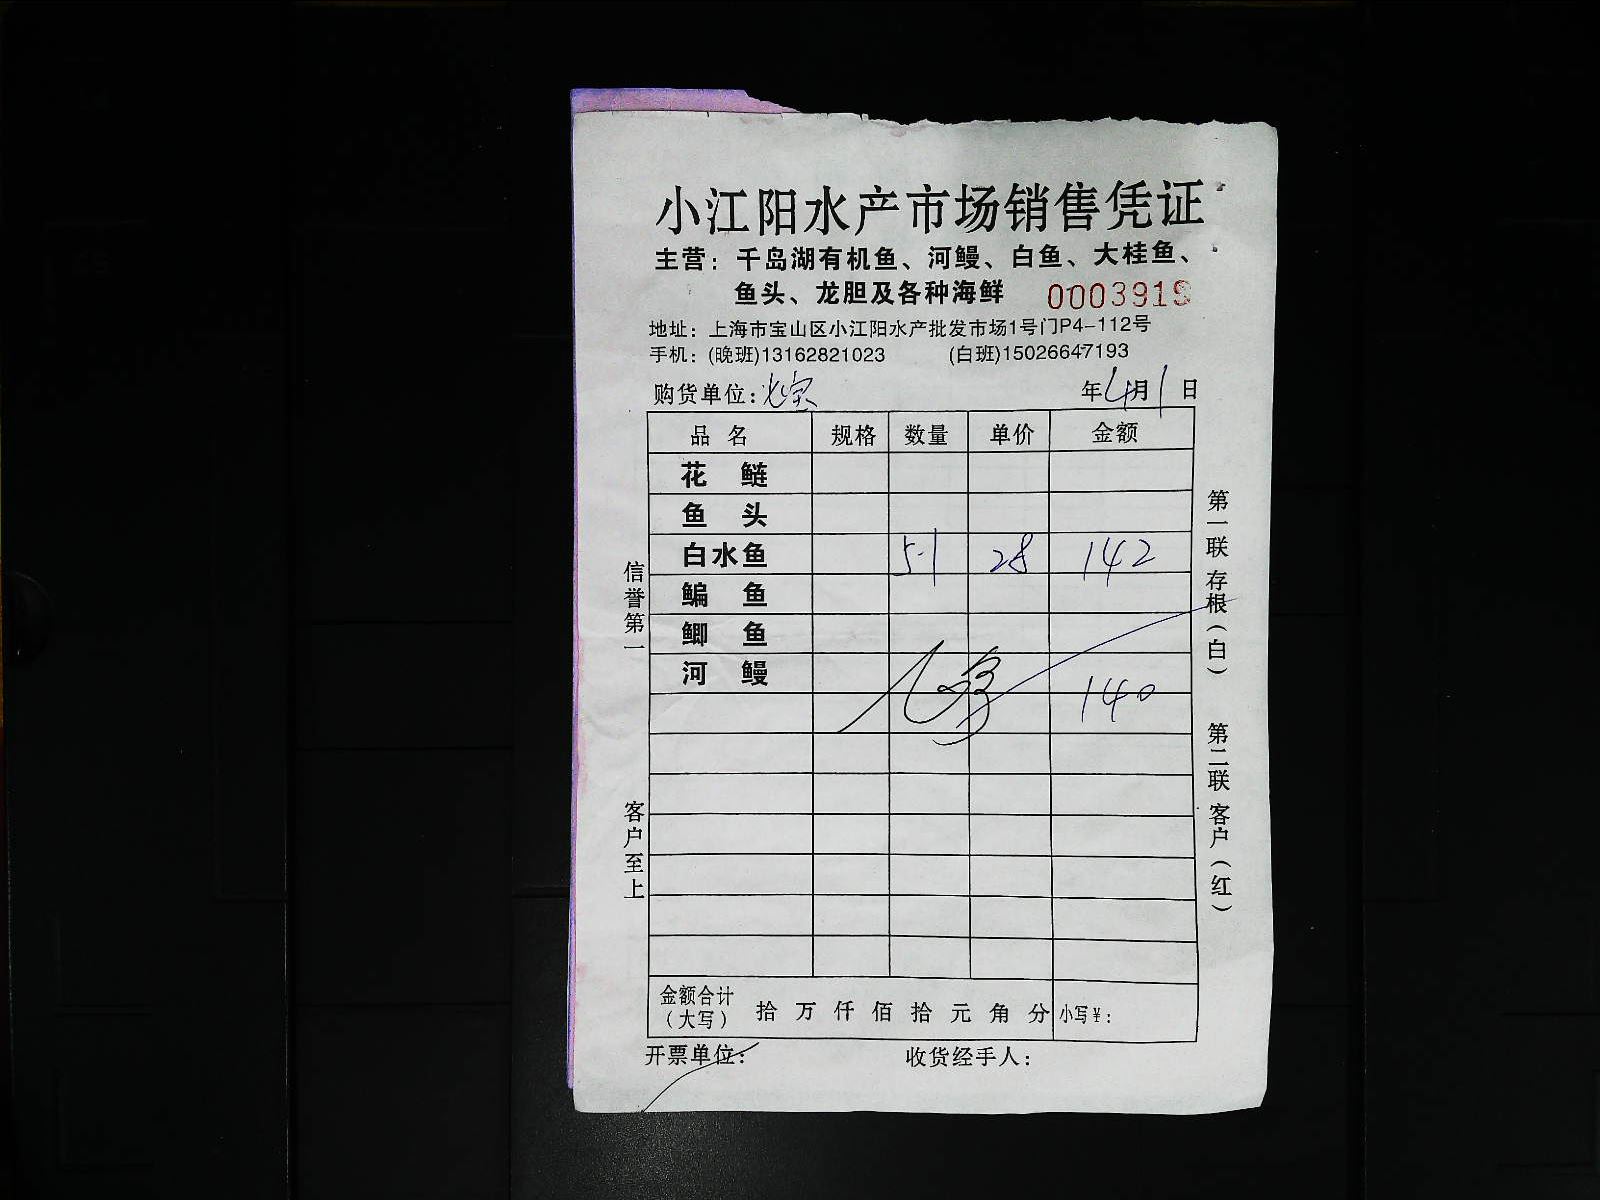 小江阳水产市场销售凭证
主营：千岛湖有机鱼、河鳗、白鱼、大桂鱼、
鱼头、龙胆及各种海鲜 0003919
地址：上海市宝山区小江阳水产批发市场1号门P4-112号
手机：(晚班)13162821023 (白班)15026647193
购货单位： 年4月1日
品名 规格 数量 单价 金额
花鲢
鱼头
白水鱼 5.1 28 142
鳊鱼
鲫鱼
河鳗
140
金额合计（大写） 拾 万 仟 佰 拾 元 角 分 小写¥：
开票单位： 收货经手人：
信誉第一
客户至上
第一联存根（白）
第二联客户（红）